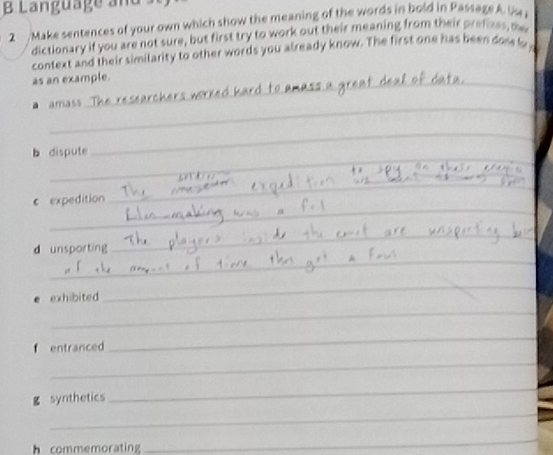 B Language and
2 Make sentences of your own which show the meaning of the words in bold in Passage A. Use
dictionary if you are not sure, but first try to work out their meaning from their prefixes, their
context and their similarity to other words you already know. The first one has been done for
as an example.
a amass The researchers worked hard to amass a great deal of data.
b dispute
c expedition The expedition to spy on their
was a
d unsporting The players inside the court are unsporting
of the amount of time they got a foul
e exhibited
f entranced
g synthetics
h commemorating